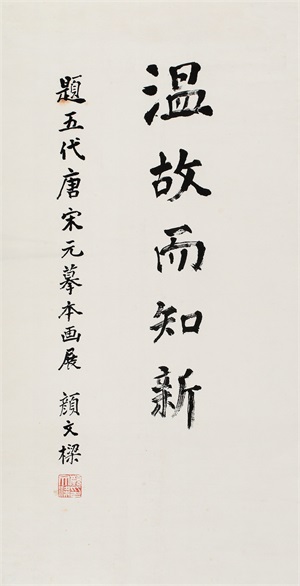 温故而知新
題五代唐宋元摹本画展 顏文樑